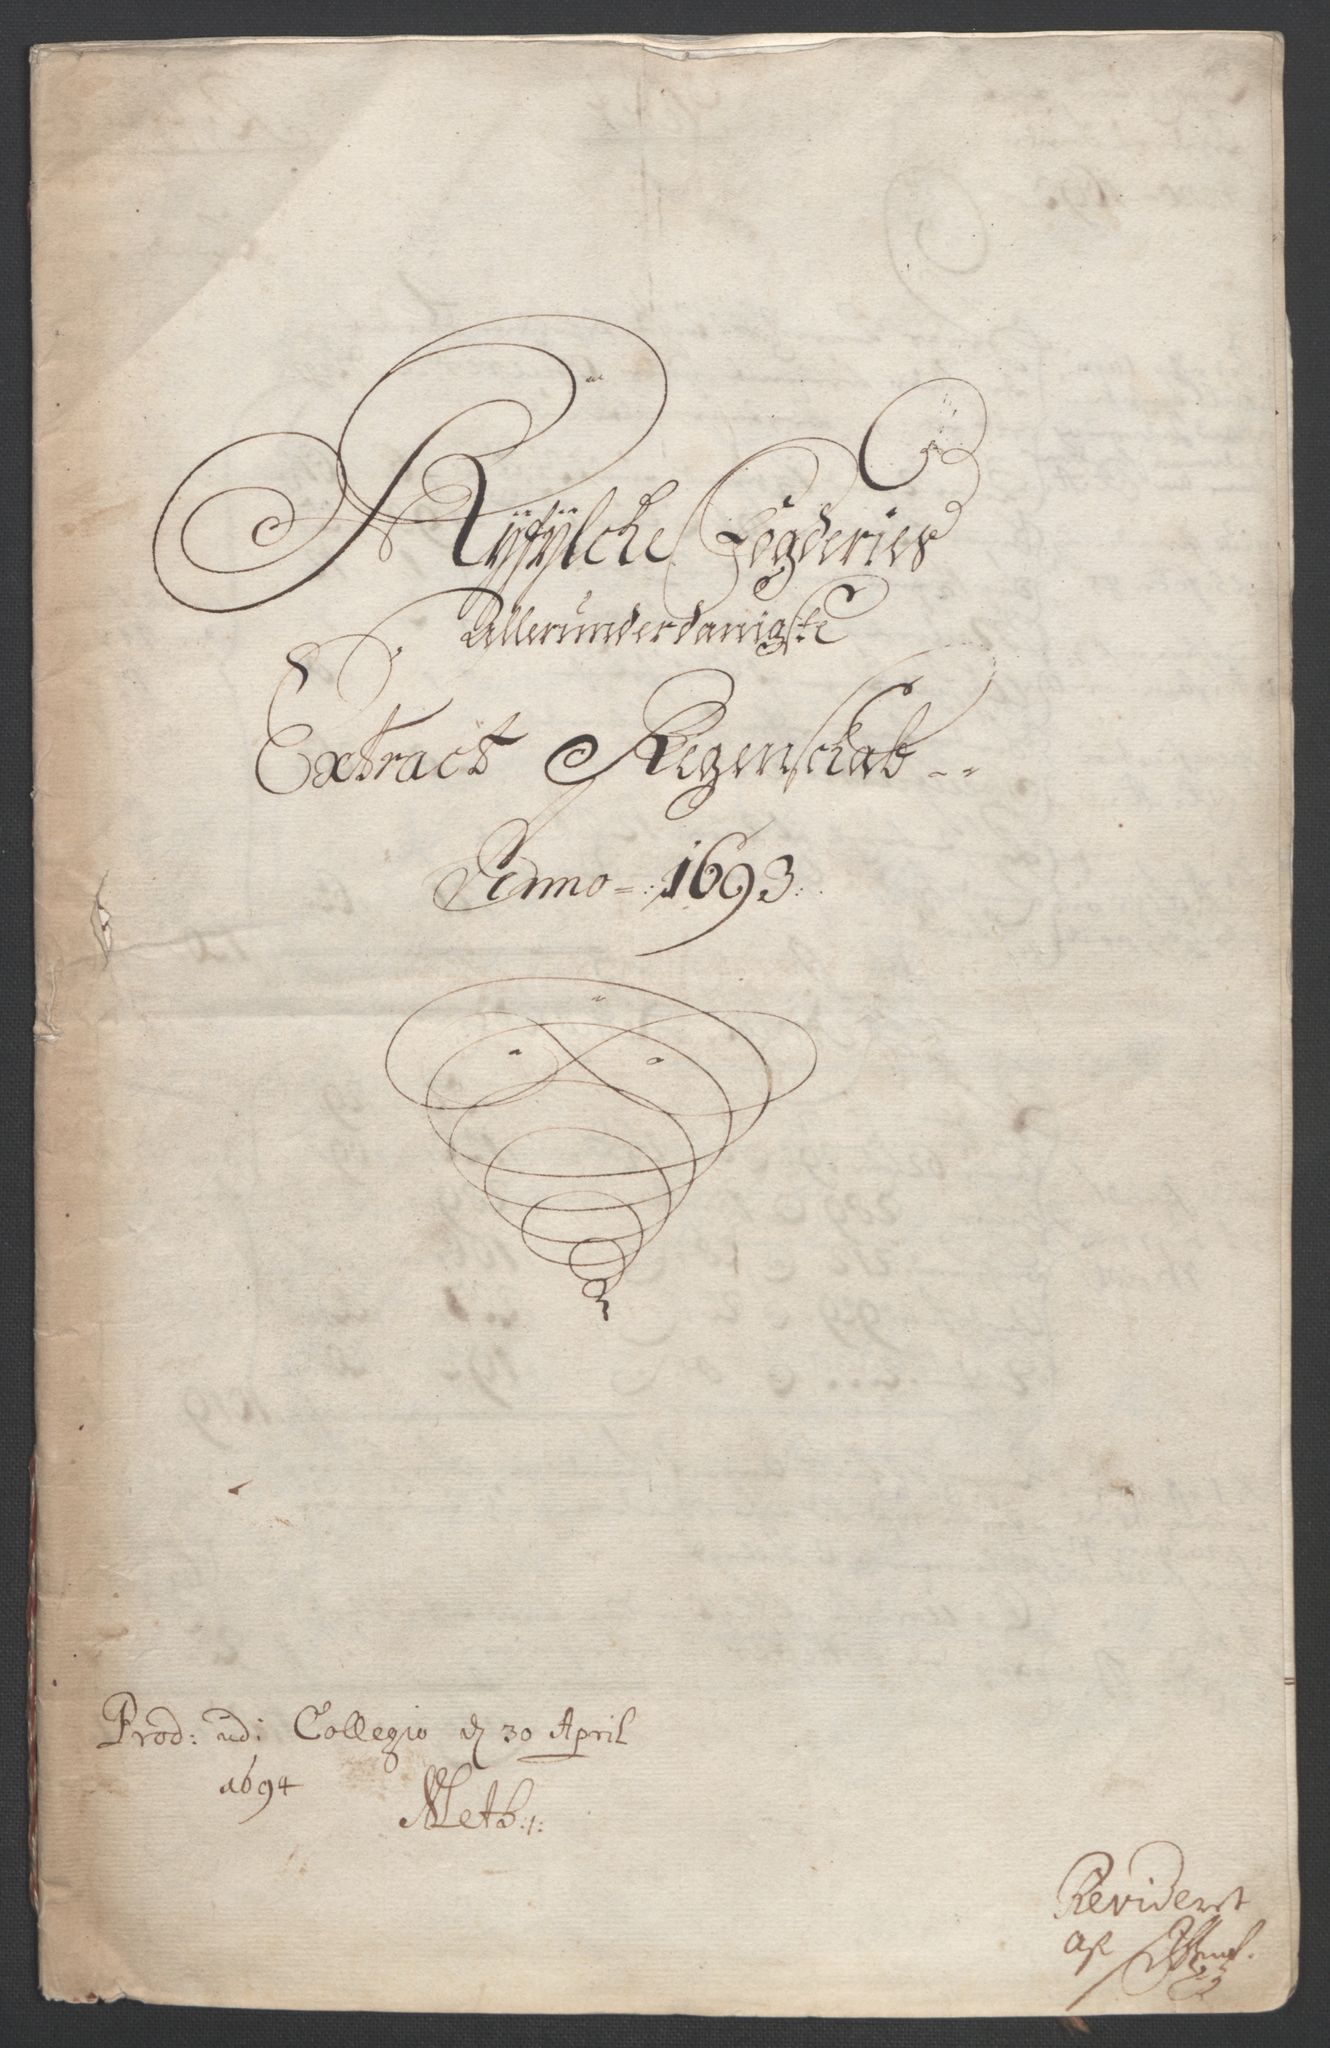 Ryfylche Fogderies
Allerunderdanigste
Extract Regenschab --
Anno - 1693
Prod: ud: Collegio d 30 April
1694
Meth:
Revideret
af